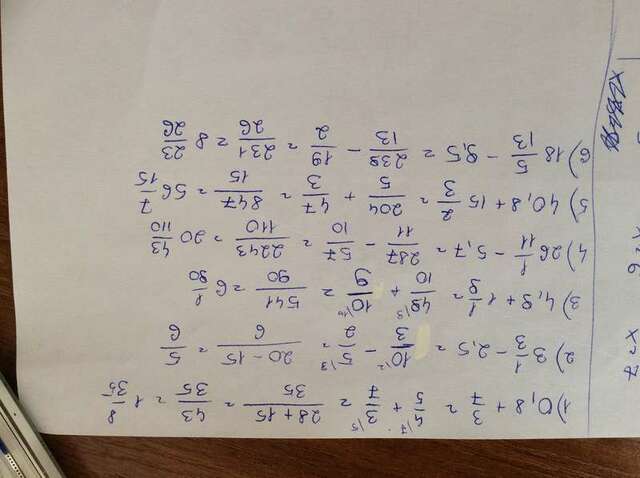 1) 0,8 + 3/7 = 4/5 \7 + 3/7 \5 = 28+15/35 = 43/35 = 1 8/35
2) 3 1/3 - 2,5 = 10/3 \2 - 5/2 \3 = 20-15/6 = 5/6
3) 4,9 + 1 1/9 = 49/10 \9 + 10/9 \10 = 541/90 = 6 1/90
4) 26 1/11 - 5,7 = 287/11 - 57/10 = 2243/110 = 20 43/110
5) 40,8 + 15 2/3 = 204/5 + 47/3 = 847/15 = 56 7/15
6) 18 5/13 - 9,5 = 239/13 - 19/2 = 231/26 = 8 23/26